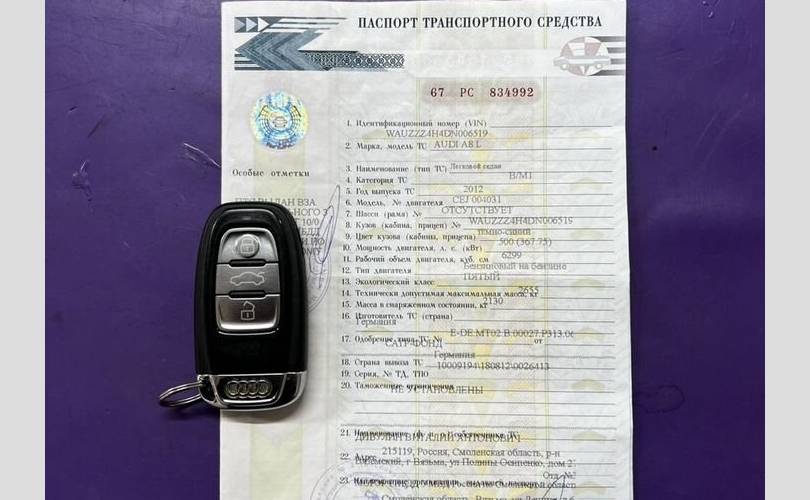 ПАСПОРТ ТРАНСПОРТНОГО СРЕДСТВА
67 РС 834992
1. Идентификационный номер (VIN)
WAUZZZ4H4DN006519
2. Марка, модель ТС AUDI A8 L
Особые отметки
3. Наименование (тип ТС) Легковой седан
4. Категория ТС B/M1
5. Год выпуска ТС 2012
6. Модель, № двигателя CEJ 004031
7. Шасси (рама) № ОТСУТСТВУЕТ
8. Кузов (кабина, прицеп) № WAUZZZ4H4DN006519
9. Цвет кузова (кабины, прицепа) темно-синий
10. Мощность двигателя, л. с. (кВт) 500 (367.75)
11. Рабочий объем двигателя, куб. см 6299
12. Тип двигателя Бензиновый на бензине
13. Экологический класс ПЯТЫЙ
14. Технически допустимая максимальная масса, кг 2655
15. Масса в снаряженном состоянии, кг 2130
16. Изготовитель ТС (страна)
Германия
17. Одобрение типа ТС № E-DE.MT02.B.00027.P313.06
САТР-ФОНД от
18. Страна вывоза ТС Германия
19. Серия, № ТД, ТПО 10009194\180812\0026413
20. Таможенные ограничения
НЕ УСТАНОВЛЕНЫ
21.
22. Адрес
215119, Россия, Смоленская область, р-н
Вяземский, г Вязьма, ул Полины Осипенко, дом
23.